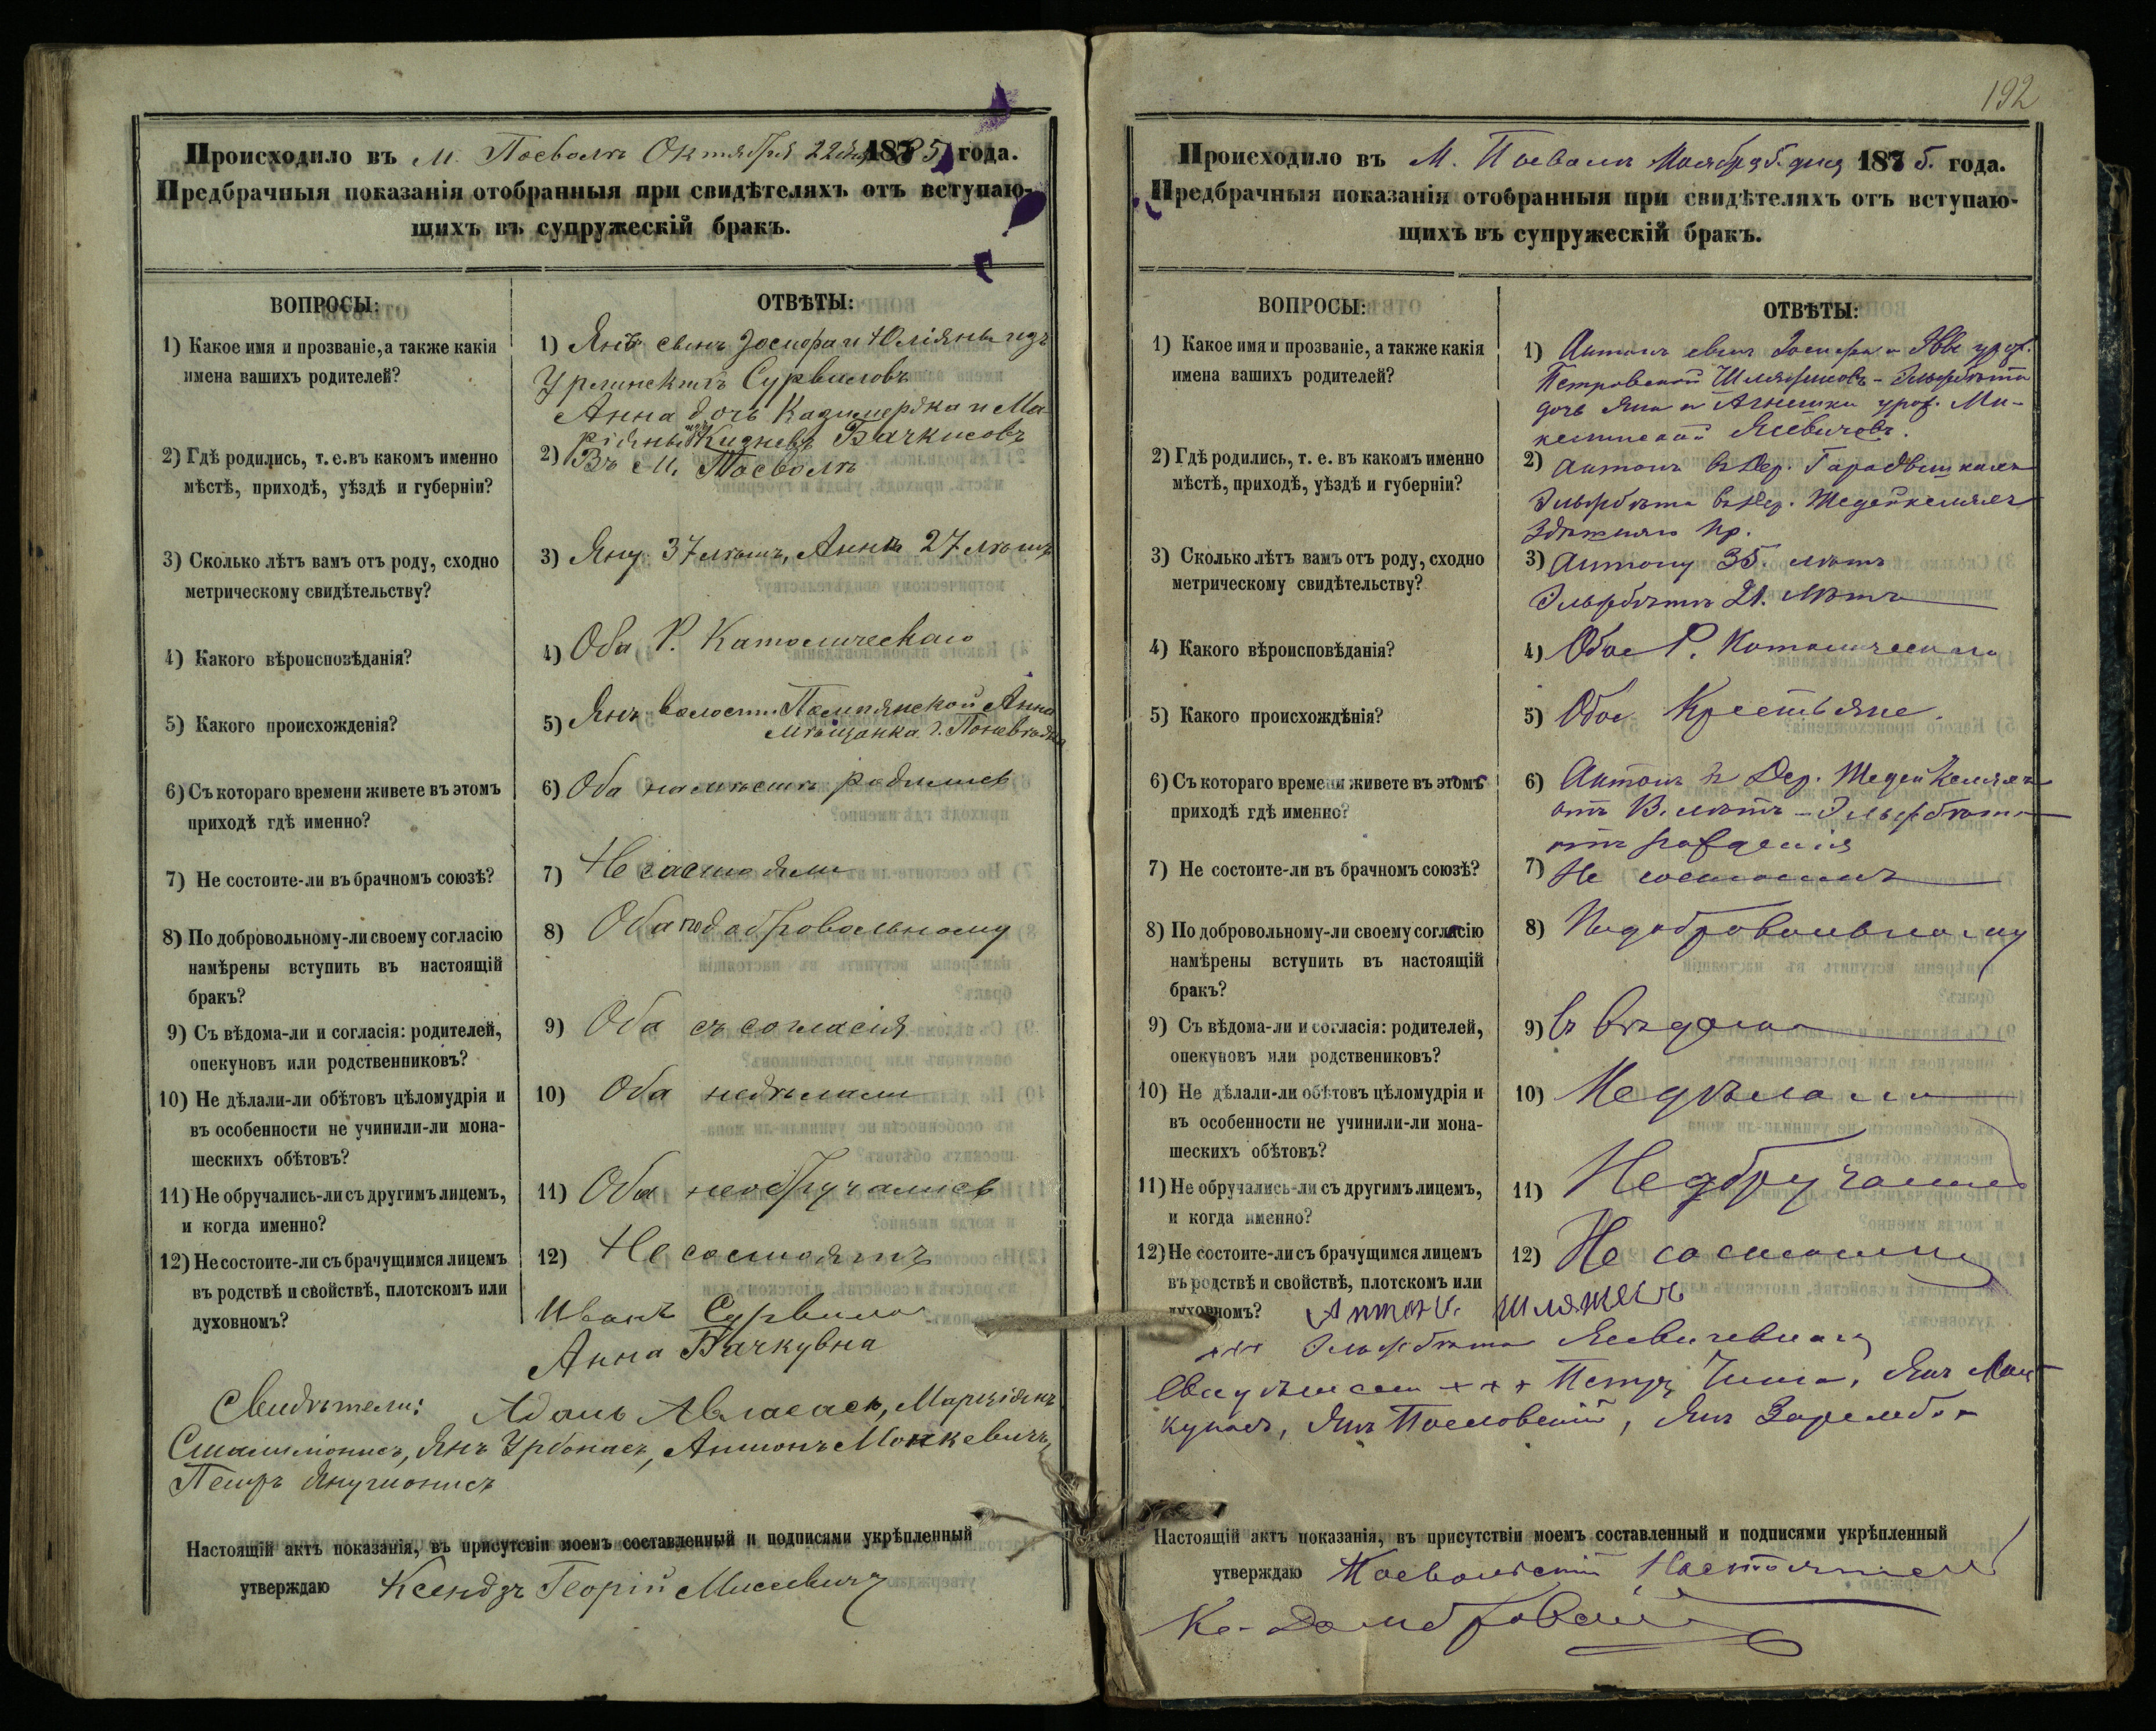 Происходило въ М. Посволѣ Октября 22 дня 1885 года.
Предбрачныя показанія отобранныя при свидѣтеляхъ отъ вступаю-
щихъ въ супружескій бракъ.
ВОПРОСЫ:
ОТВѢТЫ:
1) Какое имя и прозваніе, а также какія
имена вашихъ родителей?
1) Янъ сынъ Іосифа и Юліяны изъ
Сурвиловъ
Анна дочь Казимержа и Ма-
ріяны изъ Бачкисовъ
2) Гдѣ родились, т. е. въ какомъ именно
мѣстѣ, приходѣ, уѣздѣ и губерніи?
2) Въ М. Посволѣ
3) Сколько лѣтъ вамъ отъ роду, сходно
метрическому свидѣтельству?
3) Яну 37 лѣтъ, Аннѣ 27 лѣтъ
4) Какого вѣроисповѣданія?
4) Оба Р. Католическаго
5) Какого происхожденія?
5) Янъ волости Анна
мѣщанка г. Поневѣжа
6) Съ котораго времени живете въ этомъ
приходѣ гдѣ именно?
6) Оба на мѣстѣ родились
7) Не состоите-ли въ брачномъ союзѣ?
7) Не состояли
8) По добровольному-ли своему согласію
намѣрены вступить въ настоящій
бракъ?
8) Оба по добровольному
9) Съ вѣдома-ли и согласія: родителей,
опекуновъ или родственниковъ?
9) Оба съ согласія
10) Не дѣлали-ли обѣтовъ цѣломудрія и
въ особенности не учинили-ли мона-
шескихъ обѣтовъ?
10) Оба недѣлали
11) Не обручались-ли съ другимъ лицемъ,
и когда именно?
11) Оба необручались
12) Не состоите-ли съ брачущимся лицемъ
въ родствѣ и свойствѣ, плотскомъ или
духовномъ?
12) Не состоятъ
Иванъ Сурвило
Анна Бачкувна
Свидѣтели: Адамъ Авласасъ, Марціянъ
Янъ Урбонасъ, Антонъ Монкевичъ,
Петръ
Настоящій актъ показанія, въ присутсвіи моемъ составленный и подписями укрѣпленный
утверждаю Ксендзъ Георгій Мисевичъ
192
Происходило въ М. Посволѣ Ноября 5 дня 1885. года.
Предбрачныя показанія отобранныя при свидѣтеляхъ отъ вступаю-
щихъ въ супружескій бракъ.
ВОПРОСЫ:
ОТВѢТЫ:
1) Какое имя и прозваніе, а также какія
имена вашихъ родителей?
1) Антонъ сынъ Іосифа и Эвы урож.
Петровской - Эльжбѣта
дочь Яна и Агнешки урож. Ми-
Ясевичовъ.
2) Гдѣ родились, т. е. въ какомъ именно
мѣстѣ, приходѣ, уѣздѣ и губерніи?
2) Антонъ въ Дер.
Эльжбѣта въ Дер. Жедейкеляхъ
Здѣшняго пр.
3) Сколько лѣтъ вамъ отъ роду, сходно
метрическому свидѣтельству?
3) Антону 35. лѣтъ
Эльжбѣтѣ 21. Лѣтъ
4) Какого вѣроисповѣданія?
4) Обое Р. Католическаго
5) Какого происхождѣнія?
5) Обое Крестьяне.
6) Съ котораго времени живете въ этомъ
приходѣ гдѣ именно?
6) Антонъ въ Дер. Жедейкеляхъ
отъ лѣтъ - Эльжбѣта
отъ рожденія
7) Не состоите-ли въ брачномъ союзѣ?
7) Не состоимъ
8) По добровольному-ли своему согласію
намѣрены вступить въ настоящій
бракъ?
8) По добровольному
9) Съ вѣдома-ли и согласія: родителей,
опекуновъ или родствениковъ?
9) Съ вѣдома
10) Не дѣлали-ли обѣтовъ цѣломудрія и
въ особенности не учинили-ли мона-
шескихъ обѣтовъ?
10) Не дѣлали
11) Не обручались-ли съ другимъ лицемъ,
и когда именно?
11) Не обручались
12) Не состоите-ли съ брачущимся лицемъ
въ родствѣ и свойствѣ, плотскомъ или
духовномъ?
12) Не состоимъ
Антон.
+++ Эльжбѣта Ясевичевна
Свидѣтели +++ Петръ Янъ
Янъ Янъ Зарембо
Настоящій актъ показанія, въ присутствіи моемъ составленный и подписями укрѣпленный
утверждаю Посвольскій Настоятель
Кс. Домбровскій